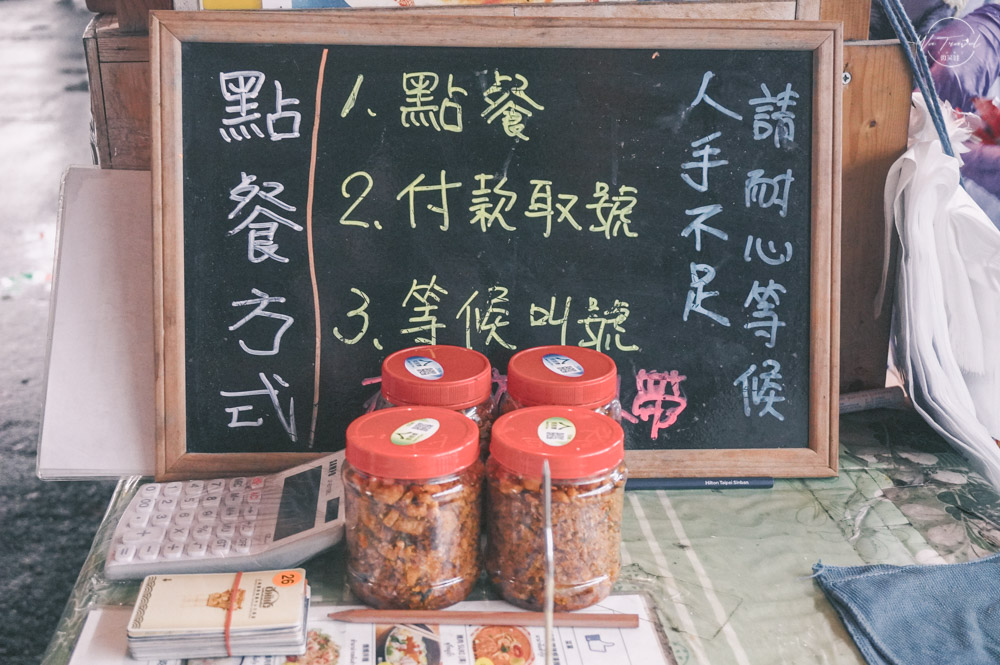 點餐方式
1. 點餐
2. 付款取號
3. 等候叫號
帶
請耐心等候
人手不足
Hilton Taipei Sinban
26